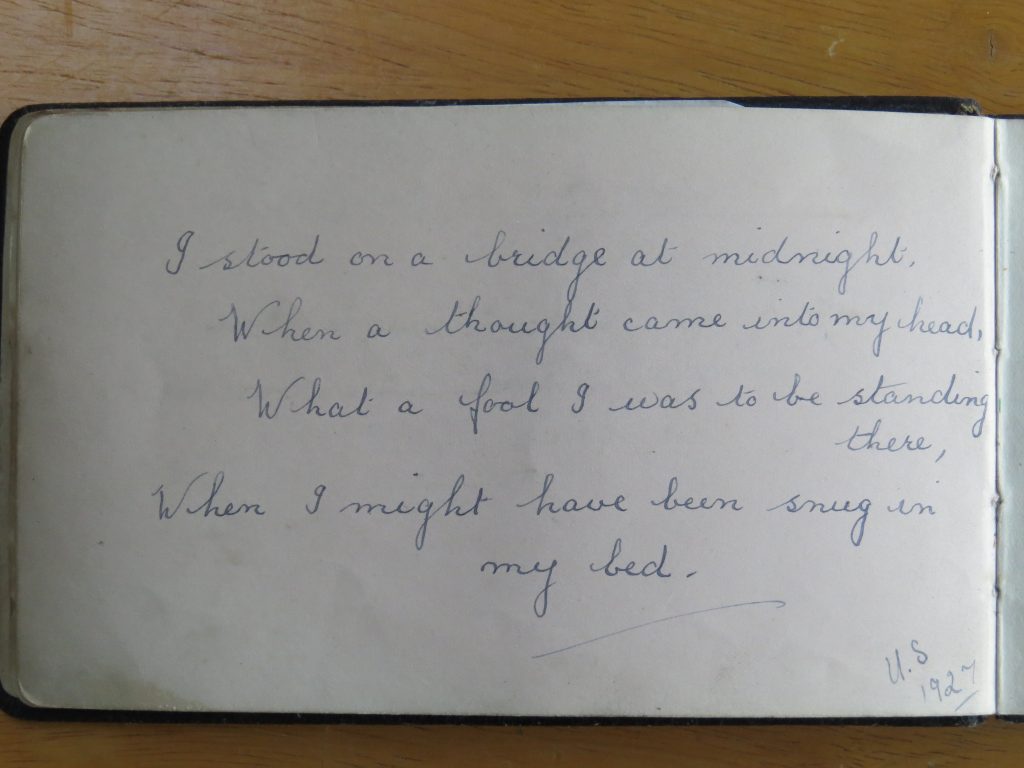 I stood on a bridge at midnight.
When a thought came into my head,
What a fool I was to be standing
there,
When I might have been snug in
my bed.
U.S
1927